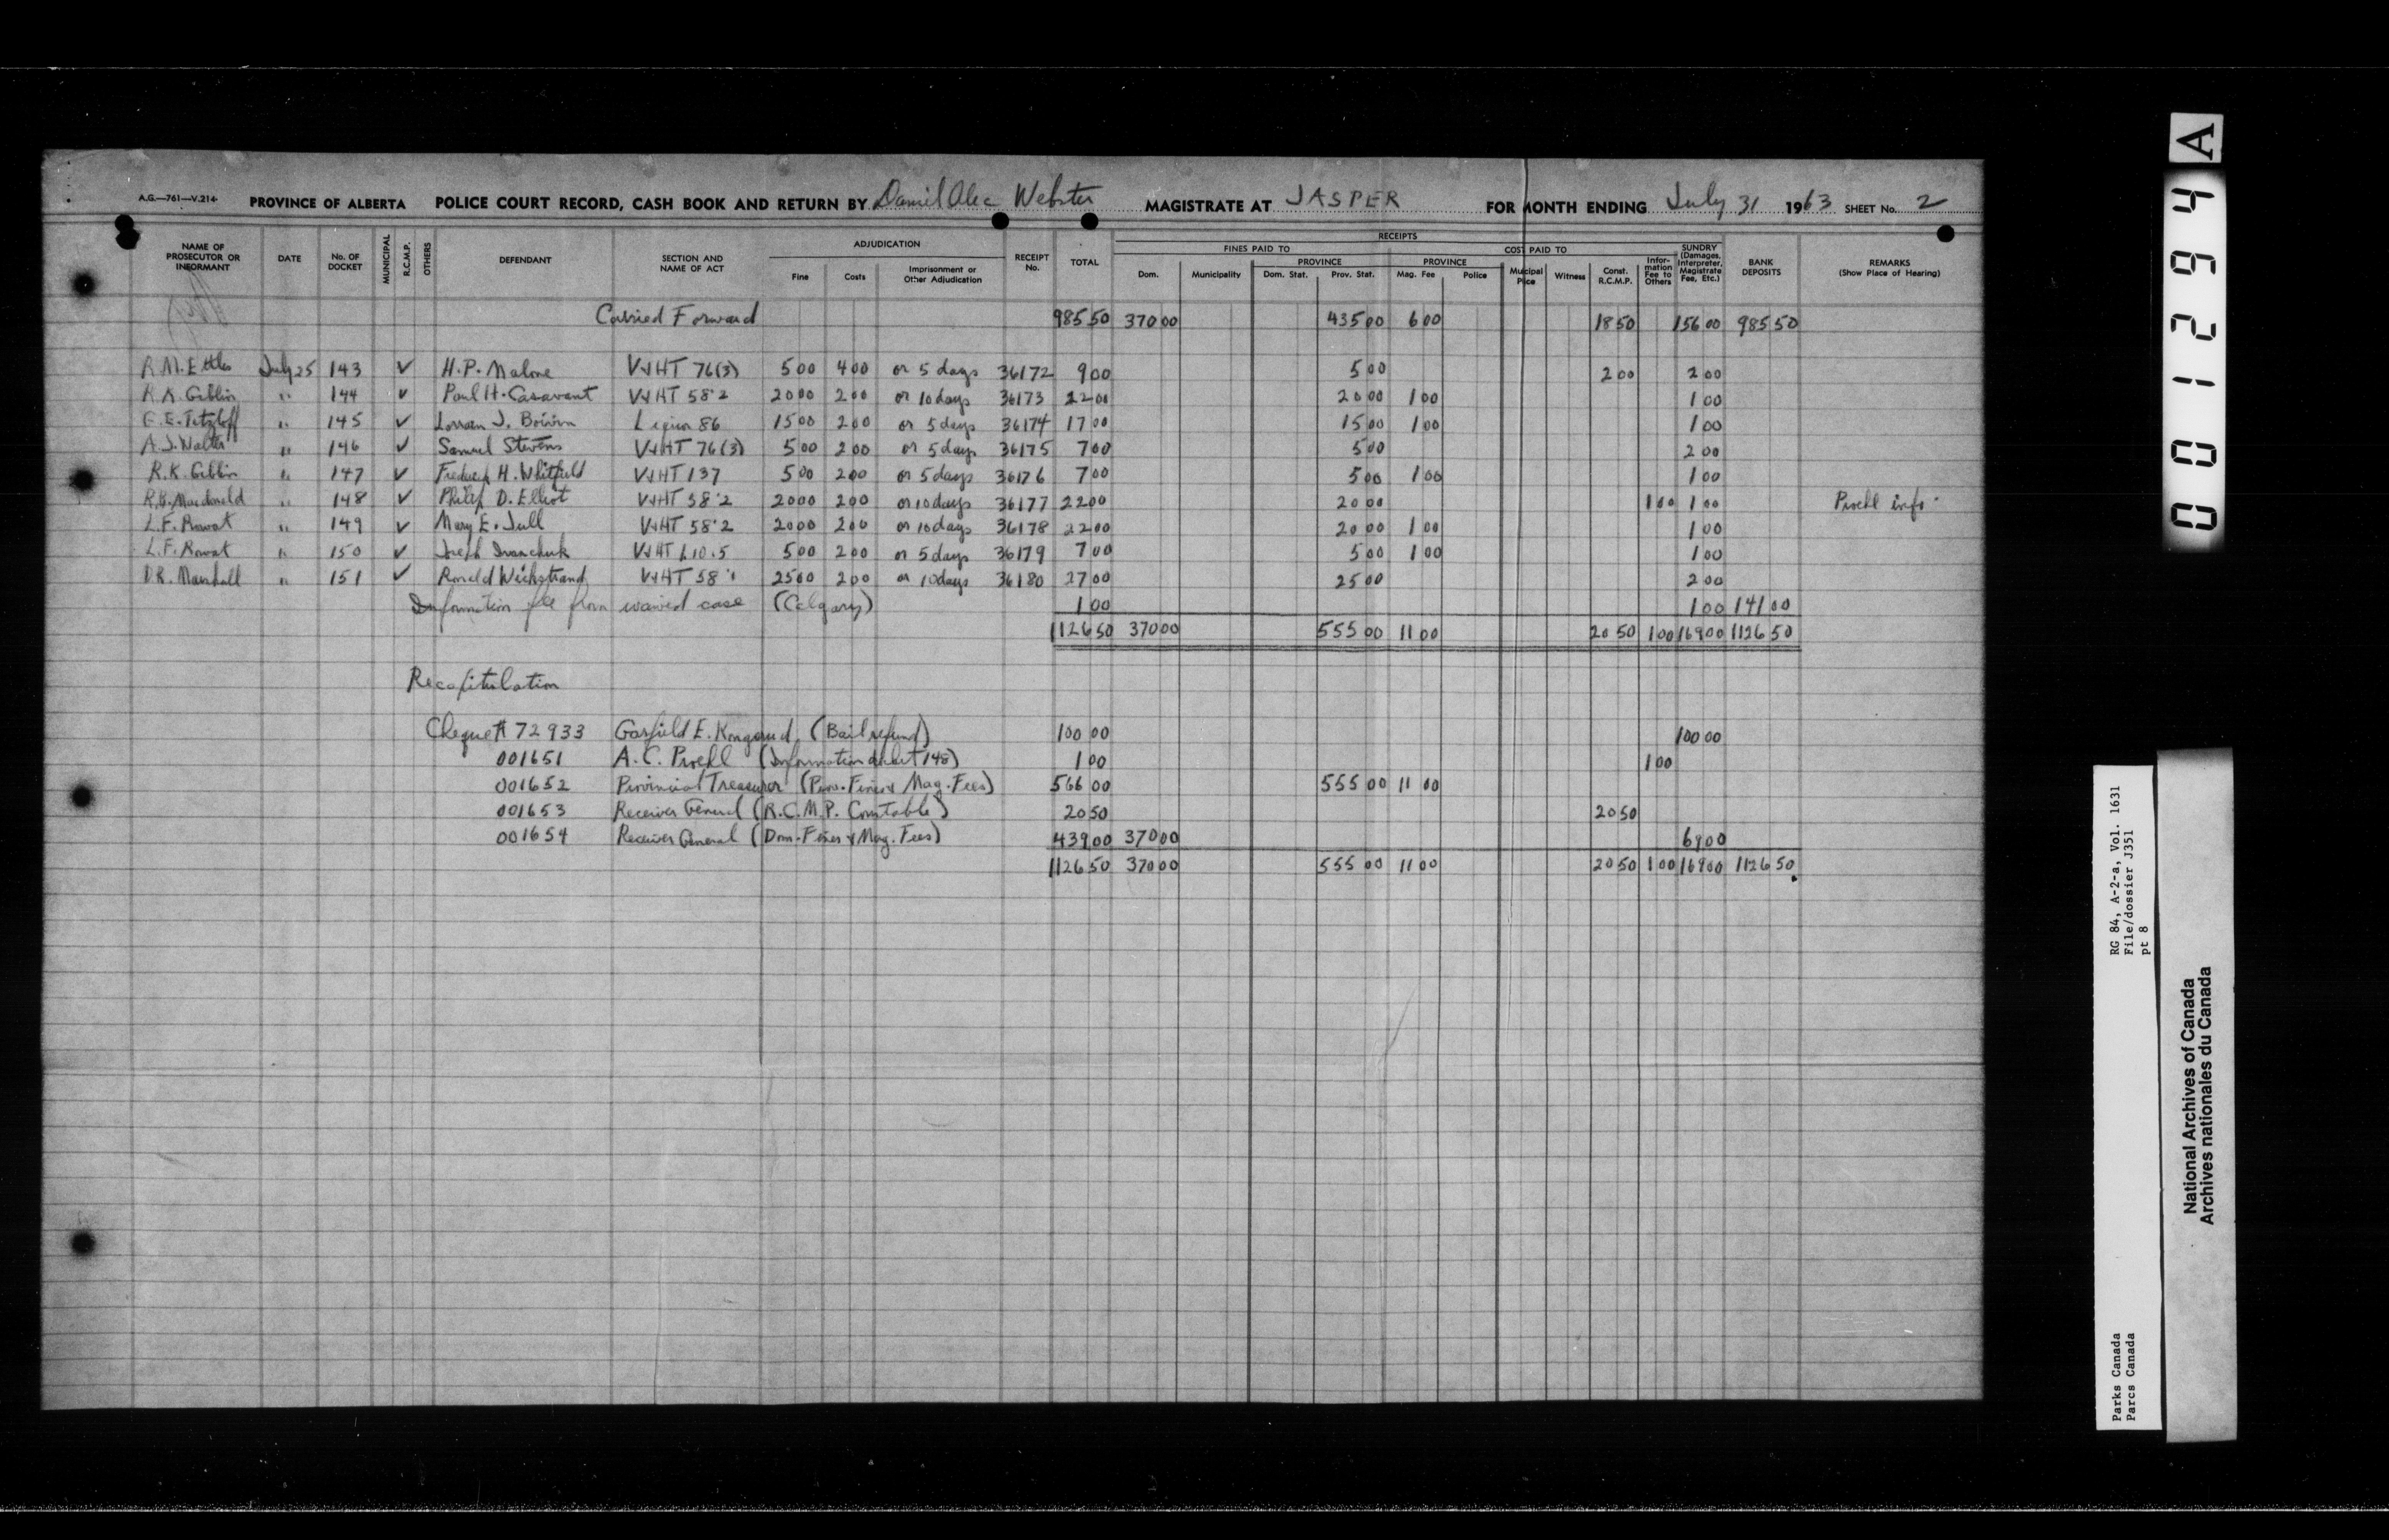 A.G.—761—V.214 PROVINCE OF ALBERTA POLICE COURT RECORD, CASH BOOK AND RETURN BY Daniel Alec Webster MAGISTRATE AT JASPER FOR MONTH ENDING July 31 1963 SHEET No. 2
NAME OF PROSECUTOR OR INFORMANT DATE No. OF DOCKET MUNICIPAL R.C.M.P. OTHERS DEFENDANT SECTION AND NAME OF ACT ADJUDICATION Fine Costs Imprisonment or Other Adjudication RECEIPT No. TOTAL RECEIPTS FINES PAID TO Dom. Municipality PROVINCE Dom. Stat. Prov. Stat. COST PAID TO PROVINCE Mag. Fee Police Municipal Police Witness Const. R.C.M.P. Information Fee to Others SUNDRY (Damages, Interpreter, Magistrate Fee, Etc.) BANK DEPOSITS REMARKS (Show Place of Hearing)
Carried Forward 985 50 370 00 435 00 6 00 18 50 156 00 985 50
R.M. Ettles July 25 143 ✓ H.P. Malone V&HT 76(3) 5 00 4 00 or 5 days 36172 9 00 5 00 2 00 2 00
R.K. Giblin " 144 ✓ Paul H. Casavant V&HT 58·2 20 00 2 00 or 10 days 36173 22 00 20 00 1 00 1 00
E.E. " 145 ✓ J. 86 15 00 2 00 or 5 days 36174 17 00 15 00 1 00 1 00
A.J. Walter " 146 ✓ Samuel Stevens V&HT 76(3) 5 00 2 00 or 5 days 36175 7 00 5 00 2 00
R.K. Giblin " 147 ✓ Frederick H. Whitfield V&HT 137 5 00 2 00 or 5 days 36176 7 00 5 00 1 00 1 00
R.B. Macdonald " 148 ✓ Philip D. Elliot V&HT 58·2 20 00 2 00 or 10 days 36177 22 00 20 00 1 00 1 00 Proehl info.
L.F. Rowat " 149 ✓ Mary E. Jull V&HT 58·2 20 00 2 00 or 10 days 36178 22 00 20 00 1 00 1 00
L.F. Rowat " 150 ✓ Joseph Ivanchuk V&HT 5 00 2 00 or 5 days 36179 7 00 5 00 1 00 1 00
D.R. Marshall " 151 ✓ Ronald Wickstrand V&HT 58·1 25 00 2 00 or 10 days 36180 27 00 25 00 2 00
Information fee from waived case (Calgary) 1 00 1 00 141 00
1126 50 370 00 555 00 11 00 20 50 1 00 169 00 1126 50
Recapitulation
Cheque # 72933 Garfield E. (Bail refund) 100 00 100 00
001651 A.C. Proehl (Information docket 148) 1 00 1 00
001652 Provincial Treasurer (Prov. Fines & Mag. Fees) 566 00 555 00 11 00
001653 Receiver General (R.C.M.P. Constable) 20 50 20 50
001654 Receiver General (Dom. Fines & Mag. Fees) 439 00 370 00 69 00
1126 50 370 00 555 00 11 00 20 50 1 00 169 00 1126 50
001294 A
RG 84, A-2-a, Vol. 1631
File/dossier J351
pt 8
Parks Canada
Parcs Canada
National Archives of Canada
Archives nationales du Canada